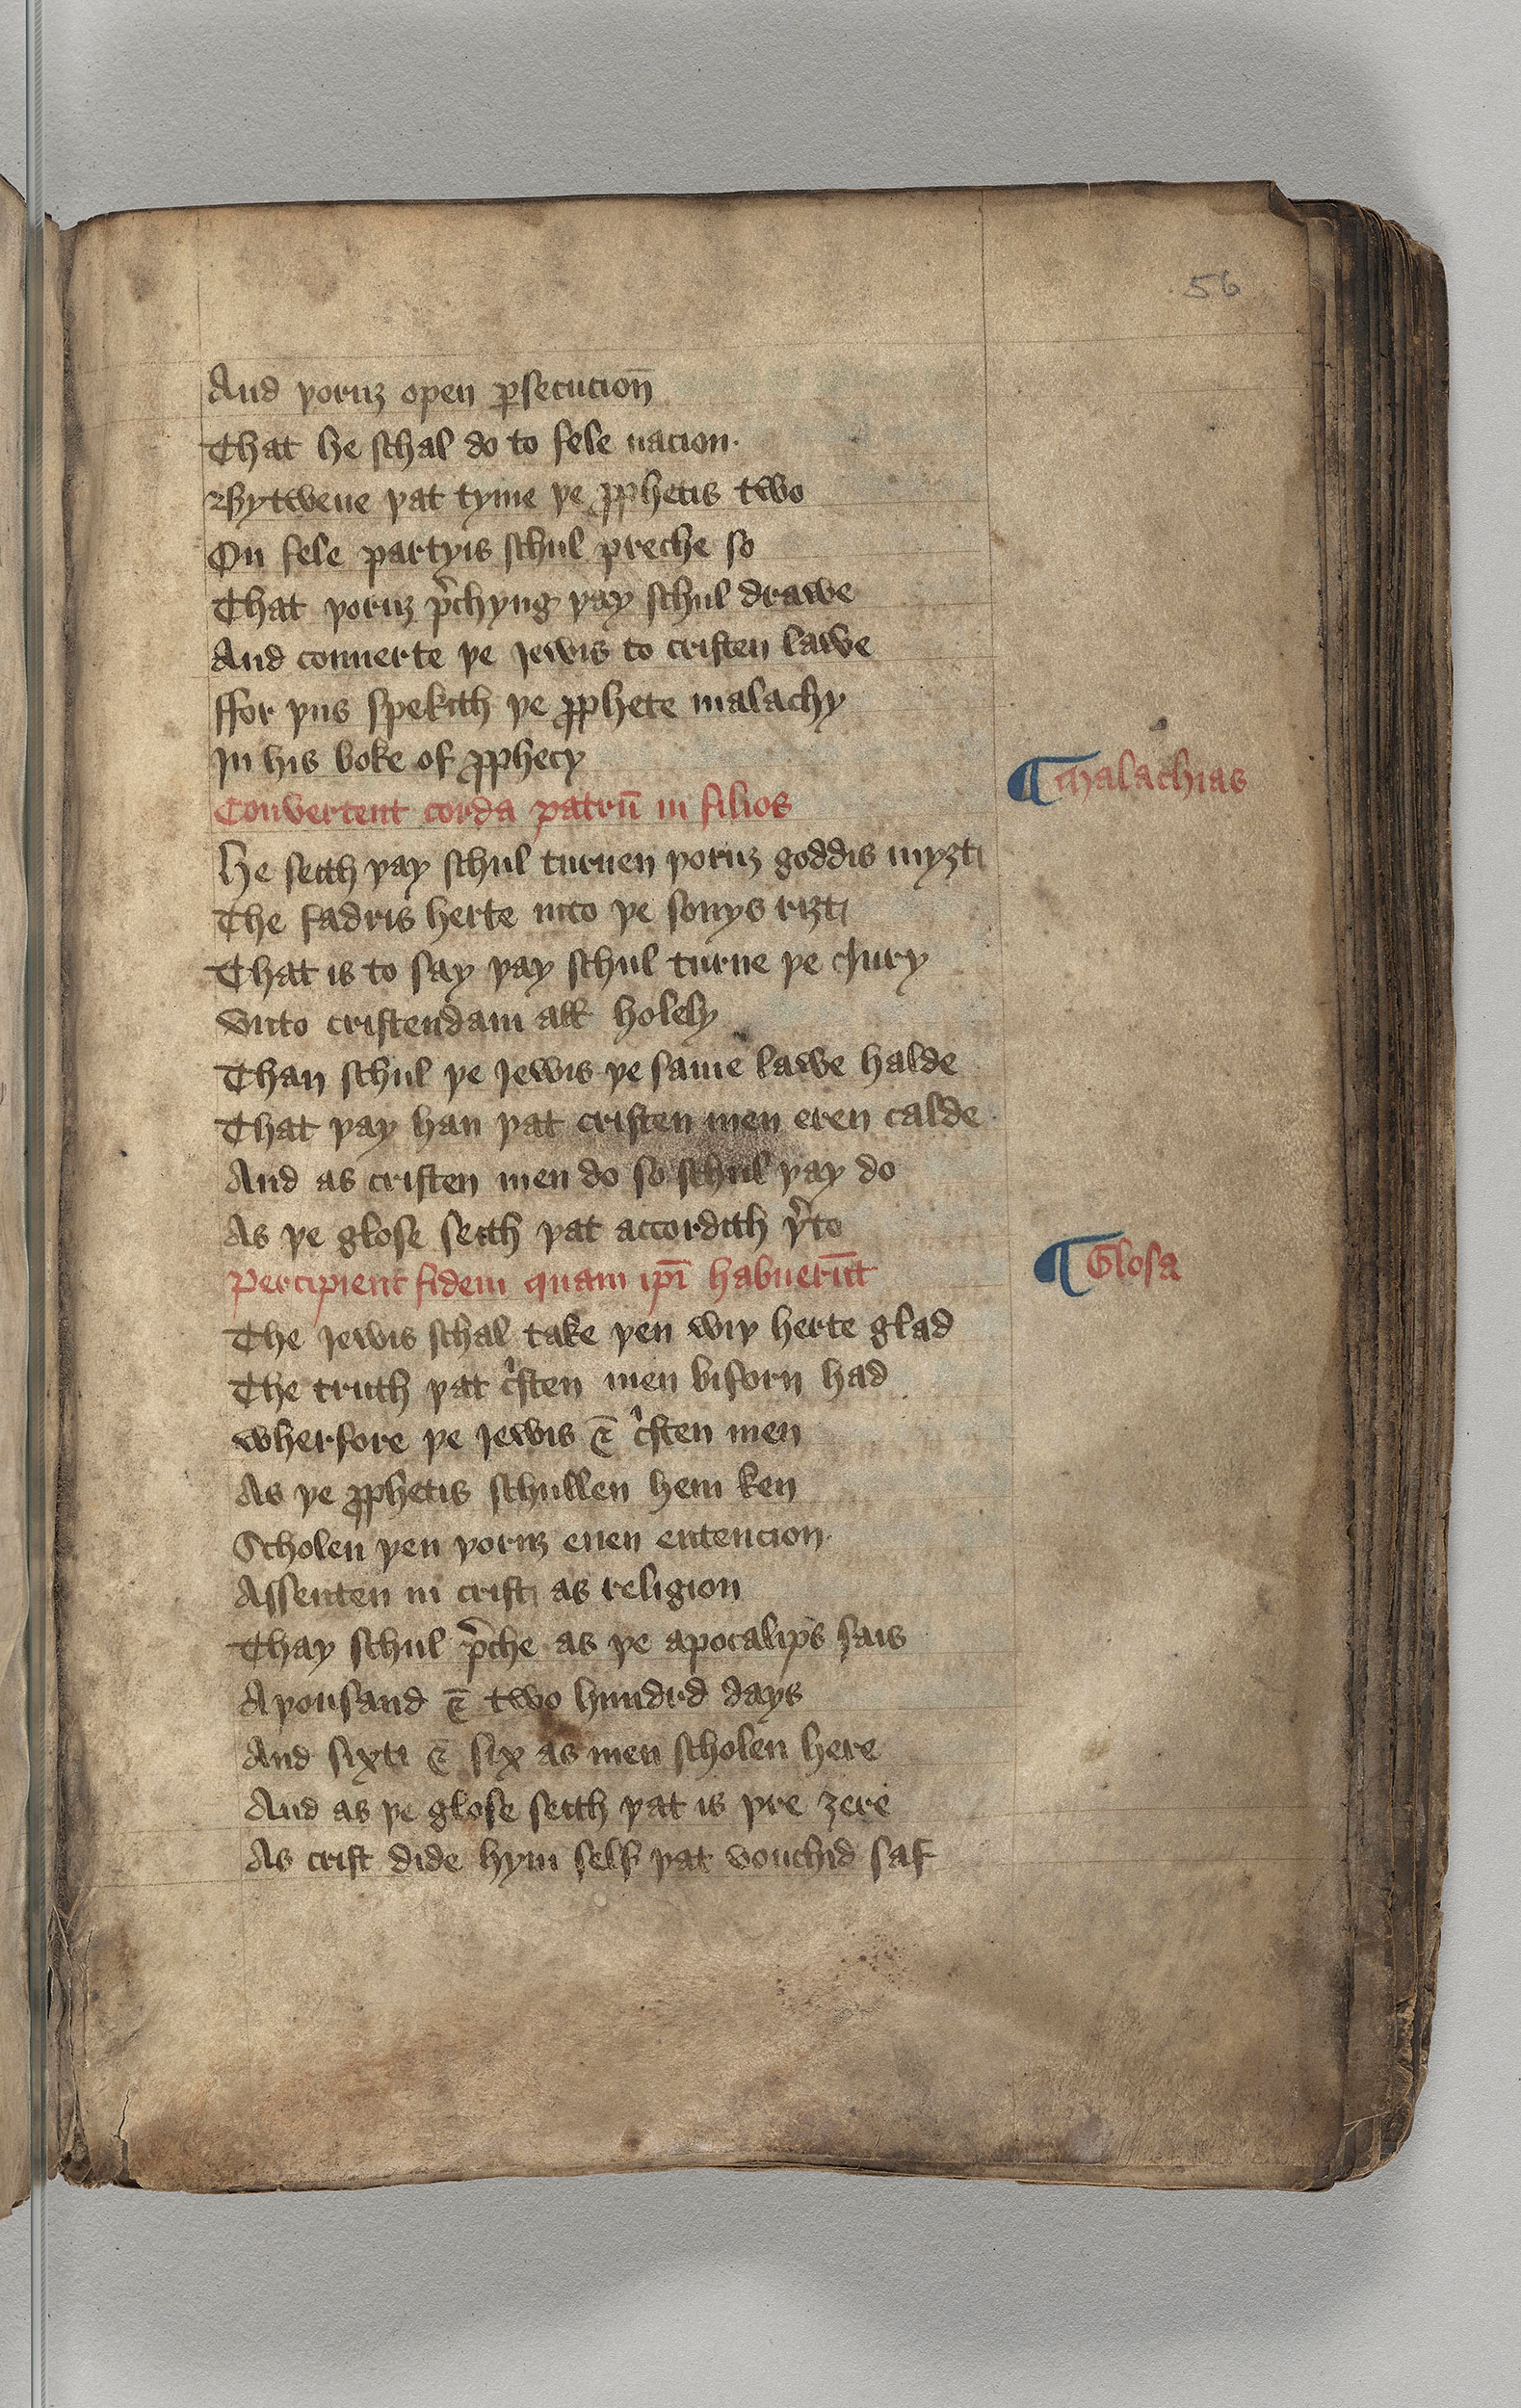 56
And þoruȝ open ꝑsecucion̄
That he schal do to fele nacion·
Bytwene þat tyme þe ꝓphetis two
On fele partyis schul preche so
That þoruȝ p̉chyng þay schul drawe
And conuerte þe Iewis to cristen lawe
ffor þus spekith þe ꝓphete malachy
In his boke of ꝓphecy
¶ Malachias
Convertent corda patrū in filios
He seith þay schul turnen þoruȝ goddis myȝt
The fadris herte into þe sonys riȝt
That is to say þay schul turne þe Iury
vnto cristendam all holely
Than schul þe Iewis þe same lawe halde
That þay han þat cristen men eren calde
And as cristen men do so schul þay do
As þe glose seith þat accordith þ̉to
¶ Glosa
Percipient fidem quam ip̄i habuerūt
The Iewis schal take þen wiþ herte glad
The truth þat cͥsten men biforn had
wherfore þe Iewis ⁊ cͥsten men
As þe ꝓphetis schullen hem ken
Scholen þen þoruȝ euen entencion·
Assenten in crist as religion
Thay schul p̉che as þe apocalips sais
A þousand ⁊ two hundrd days
And sixti ⁊ six as men scholen here
And as þe glose seith þat is þre ȝere
As crist dide hym self þat vouchid saf